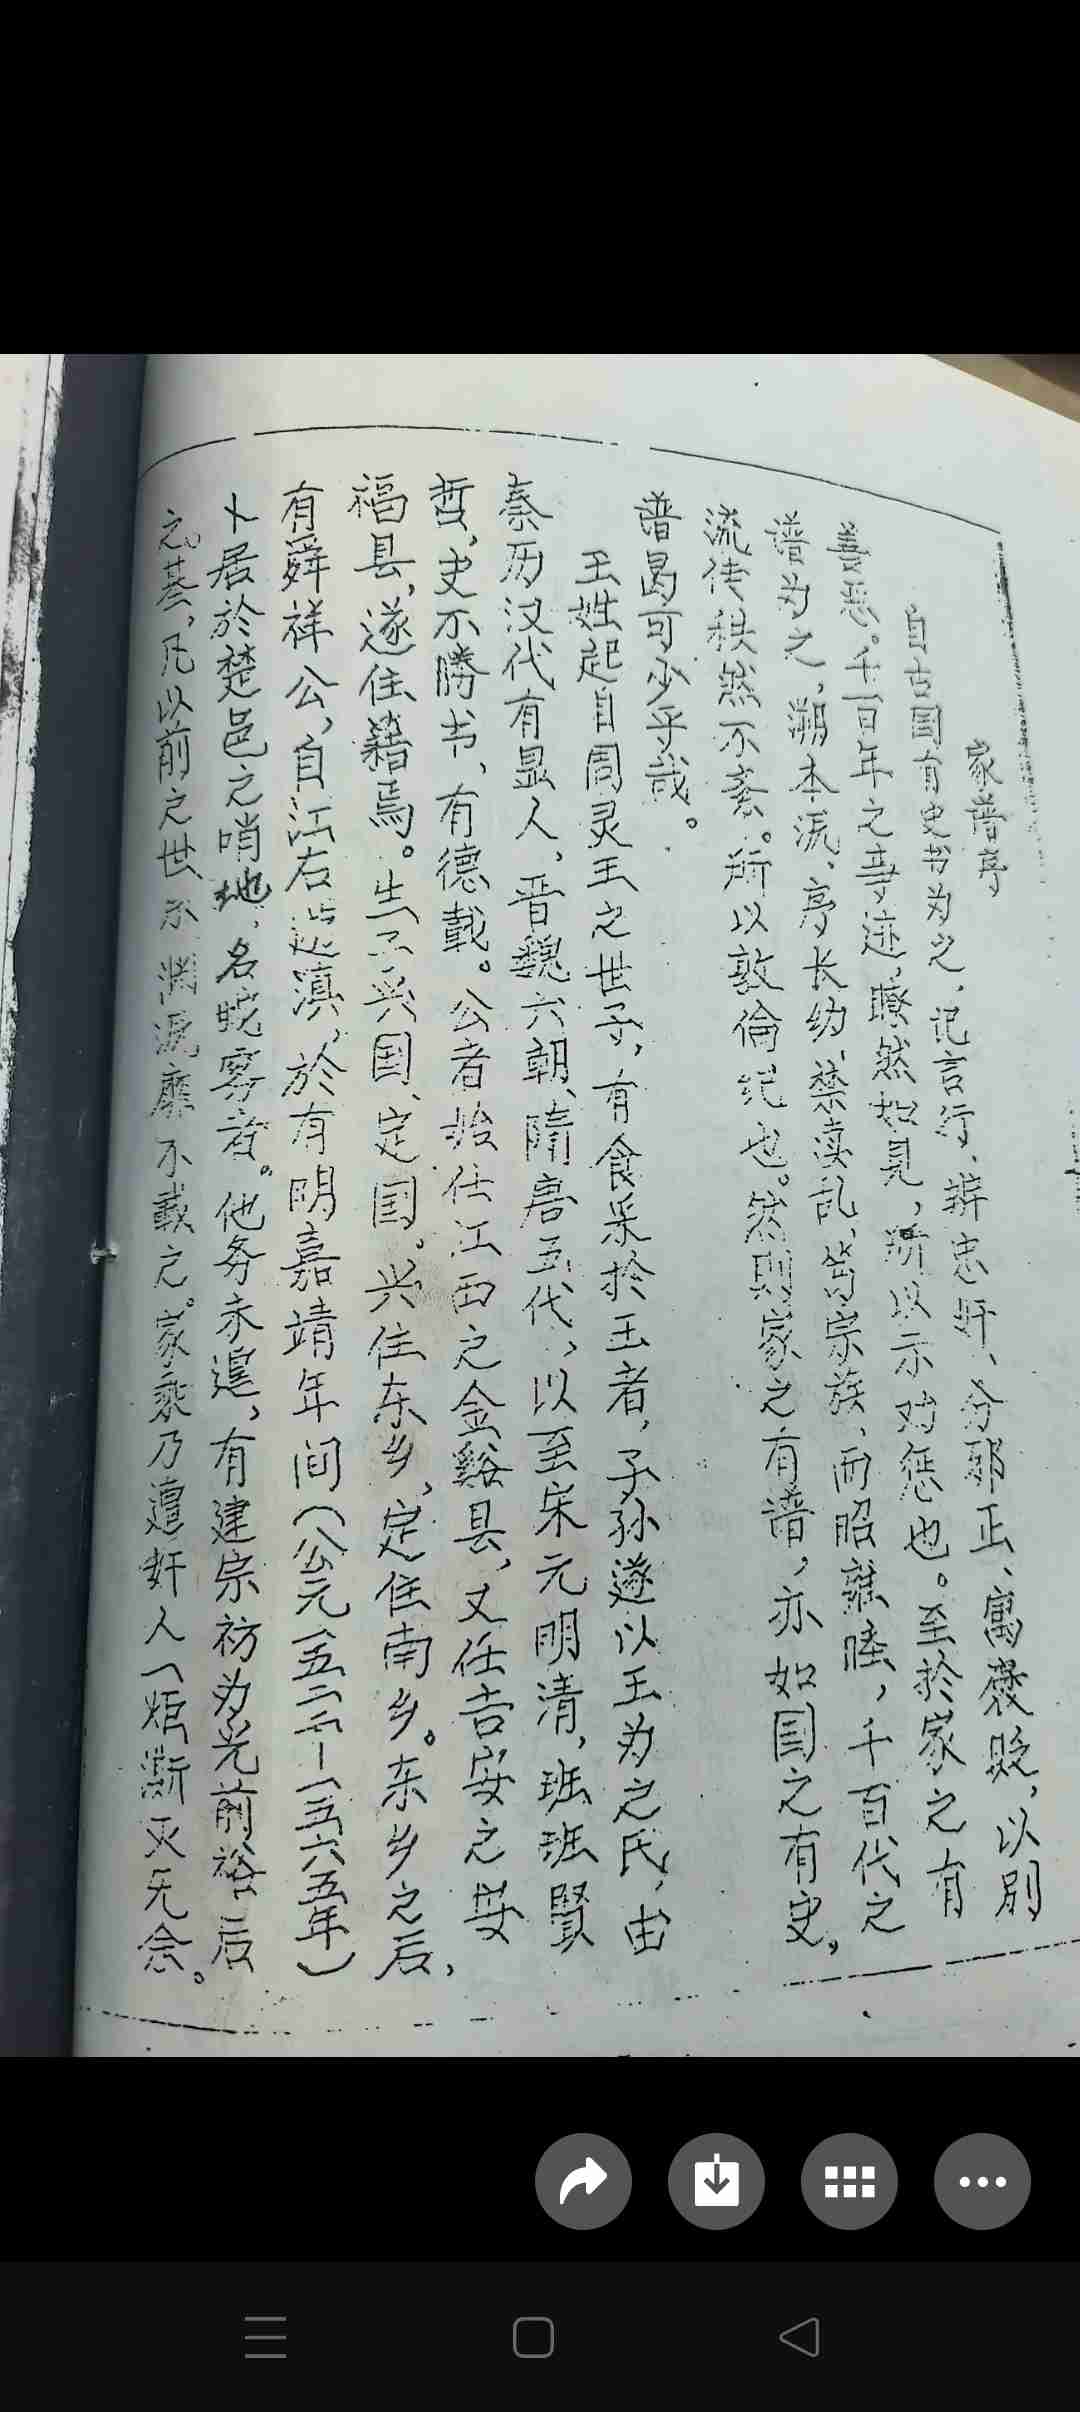 家谱序
自古国有史书为之、记言行、辨忠奸、分邪正、寓褒贬，以别
善恶。千百年之事迹，暸然如見，所以示劝惩也。至於家之有
谱为之，溯本流、序长幼、禁渎乱、笃宗族、而昭雝睦，千百代之
流传秩然不紊。所以敦倫纪也。然则家之有谱，亦如国之有史，
谱曷可少乎哉。
王姓起自周灵王之世子，有食采於王者，子孙遂以王为之氏，由
秦历汉代有显人，晋魏六朝、隋唐五代，以至宋元明清，班班賢
哲，史不勝书，有德载。公者始仕江西之金谿县，又任吉安之安
福县，遂住籍焉。生子兴国、定国。兴住东乡，定住南乡。东乡之后，
有舜祥公，自江右 滇，於有明嘉靖年间（公元一五二二—一五六五年）
卜居於楚邑之哨地，名 者。他务未遑，有建宗祊为光前裕后
之基，凡以前之世 渊源靡不載之。家乘乃遭奸人一炬澌灭无余。